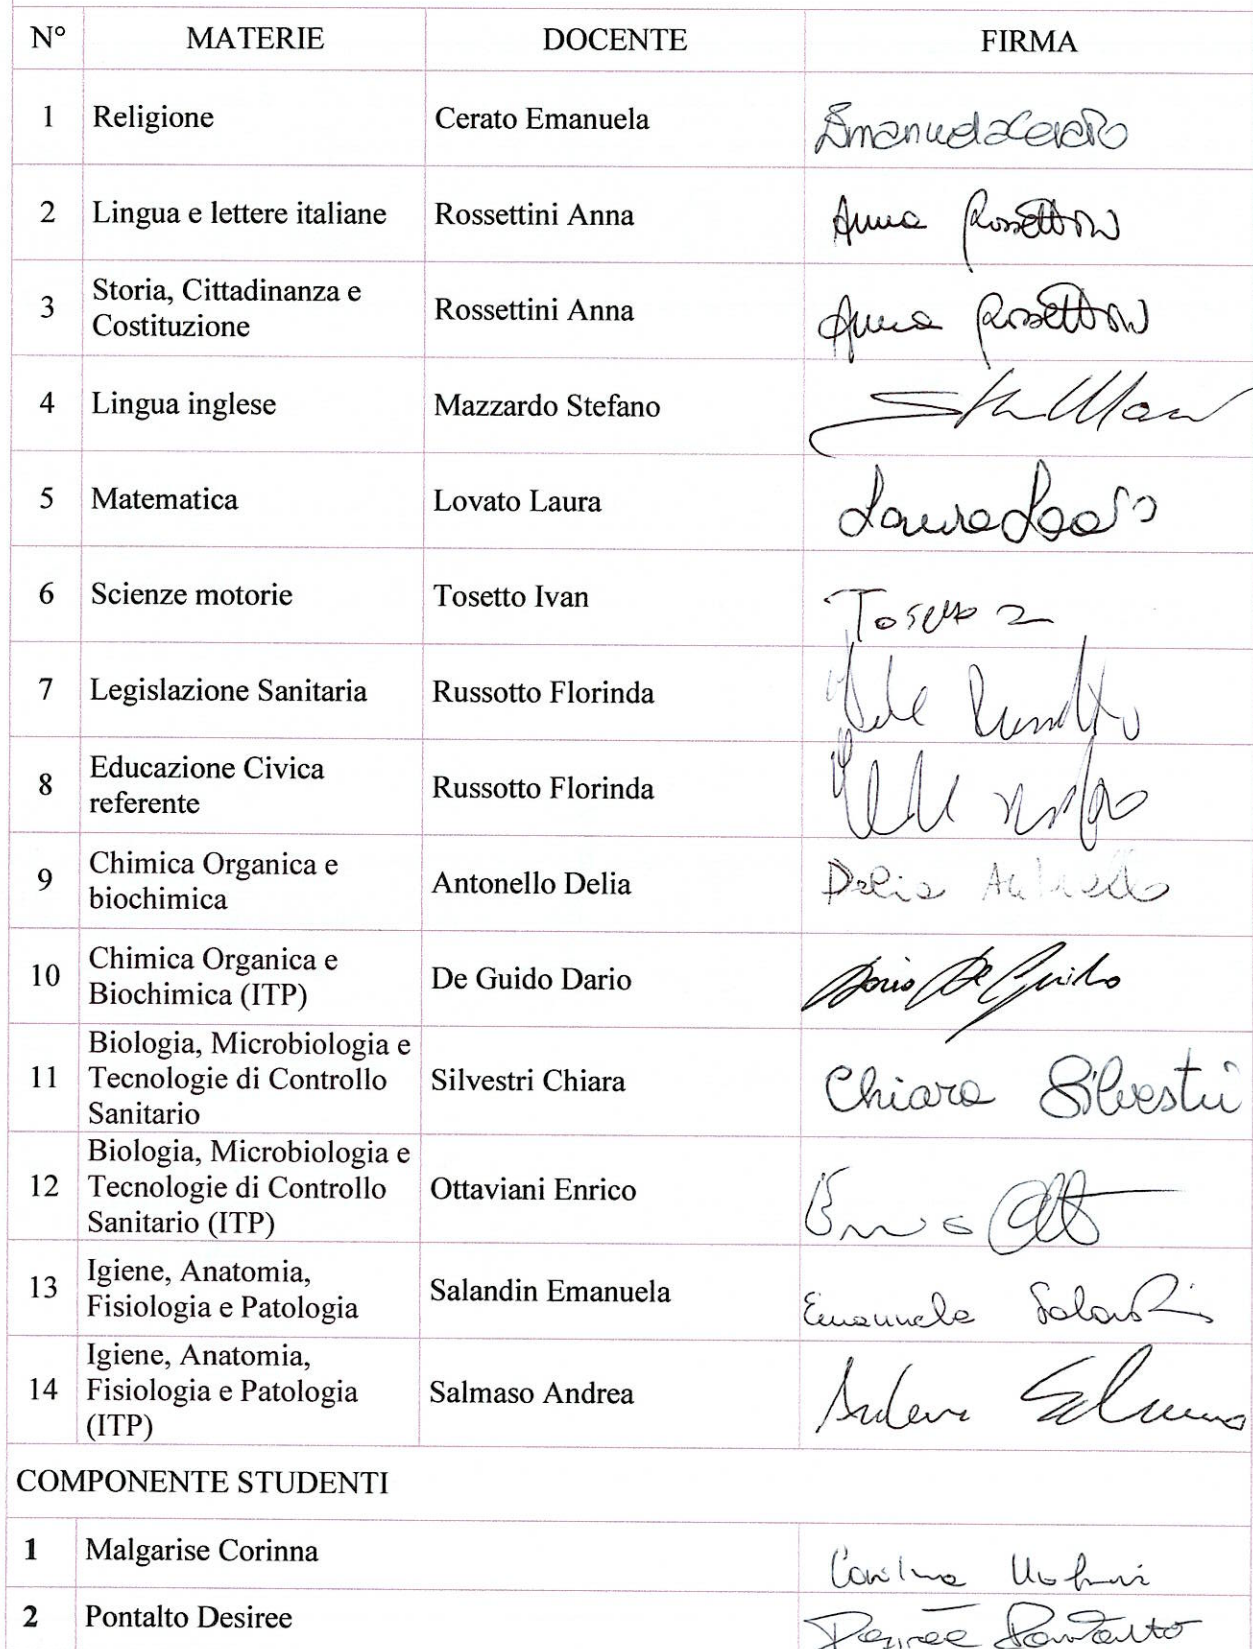 N° MATERIE DOCENTE FIRMA
1 Religione Cerato Emanuela Emanuela Cerato
2 Lingua e lettere italiane Rossettini Anna Anna Rossettini
Storia, Cittadinanza e
3 Costituzione Rossettini Anna Anna Rossettini
4 Lingua inglese Mazzardo Stefano
5 Matematica Lovato Laura Laura
6 Scienze motorie Tosetto Ivan Tosetto
7 Legislazione Sanitaria Russotto Florinda
Educazione Civica
8 referente Russotto Florinda
Chimica Organica e
9 biochimica Antonello Delia Delia Antonello
Chimica Organica e
10 Biochimica (ITP) De Guido Dario Dario De Guido
Biologia, Microbiologia e
11 Tecnologie di Controllo Silvestri Chiara Chiara Silvestri
Sanitario
Biologia, Microbiologia e
12 Tecnologie di Controllo Ottaviani Enrico
Sanitario (ITP)
Igiene, Anatomia,
13 Fisiologia e Patologia Salandin Emanuela Emanuela Salandin
Igiene, Anatomia,
14 Fisiologia e Patologia Salmaso Andrea Andrea Salmaso
(ITP)
COMPONENTE STUDENTI
1 Malgarise Corinna
2 Pontalto Desiree Desiree Pontalto